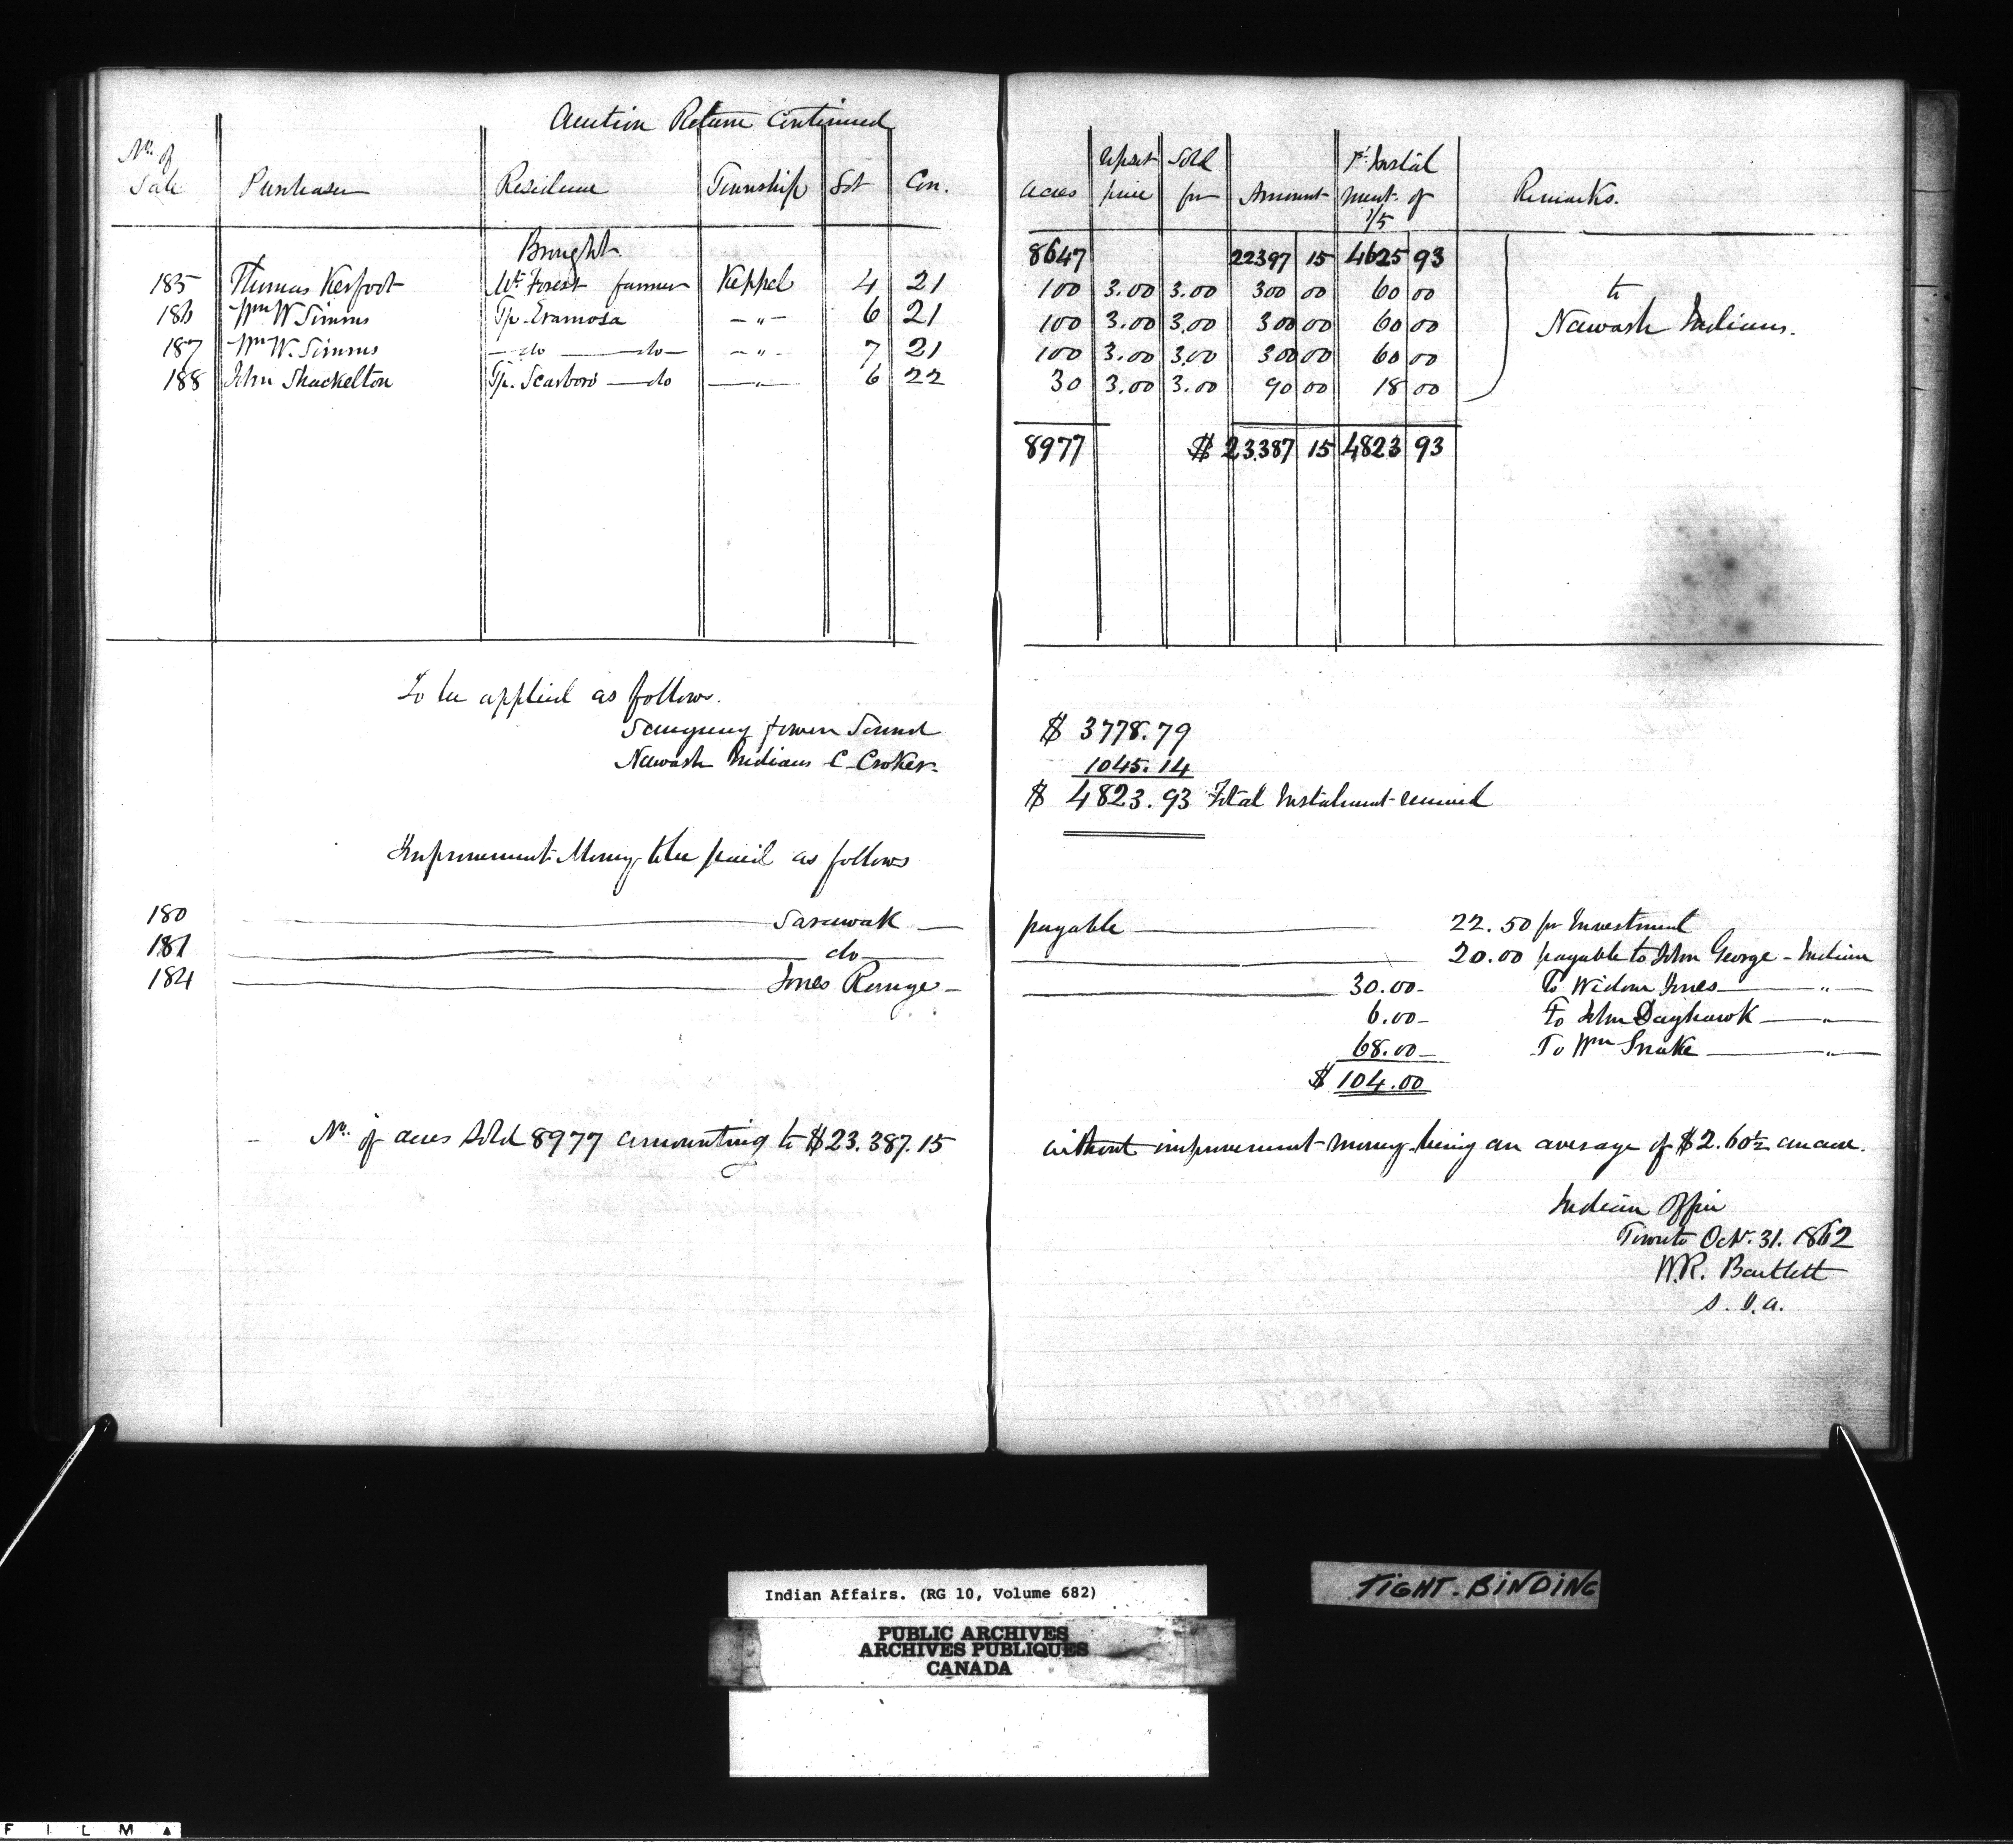 Auction Return Continued
No. of Sale Purchaser Residence Township Lot Con. Acres Upset price Sold for Amount 1st Instalment of 1/5 Remarks.
Brought 8647 22397 15 4625 93
185 Thomas Kerfoot Mt Forest farmer Keppel 4 21 100 3.00 3.00 300 00 60 00 to
186 Wm W Simms Tp. Eramosa —"— 6 21 100 3.00 3.00 300 00 60 00 Nawash Indians.
187 Wm W. Simms — do — do — —"— 7 21 100 3.00 3.00 300 00 60 00
188 John Shackelton Tp. Scarboro — do —"— 6 22 30 3.00 3.00 90 00 18 00
8977 $ 23387 15 4823 93
To be applied as follows.
Saugeeng & Owen Sound $ 3778.79
Nawash Indians C. Croker. 1045.14
$ 4823.93 Total Instalment received
Improvement Money to be paid as follows
180 Sarawak — payable — 22.50 for Investment
181 do — 20.00 payable to John George - Indian
184 Jones Range — 30.00 - To Widow Jones — " —
6.00 - To John Dayhawk — " —
68.00 - To Wm Snake — " —
$ 104.00
No. of acres sold 8977 amounting to $23.387.15 without improvement money being an average of $2.60½ an acre.
Indian Office
Toronto Oct. 31. 1862
W.R. Bartlett
S. I. A.
Indian Affairs. (RG 10, Volume 682)
PUBLIC ARCHIVES
ARCHIVES PUBLIQUES
CANADA
TIGHT-BINDING
FILM